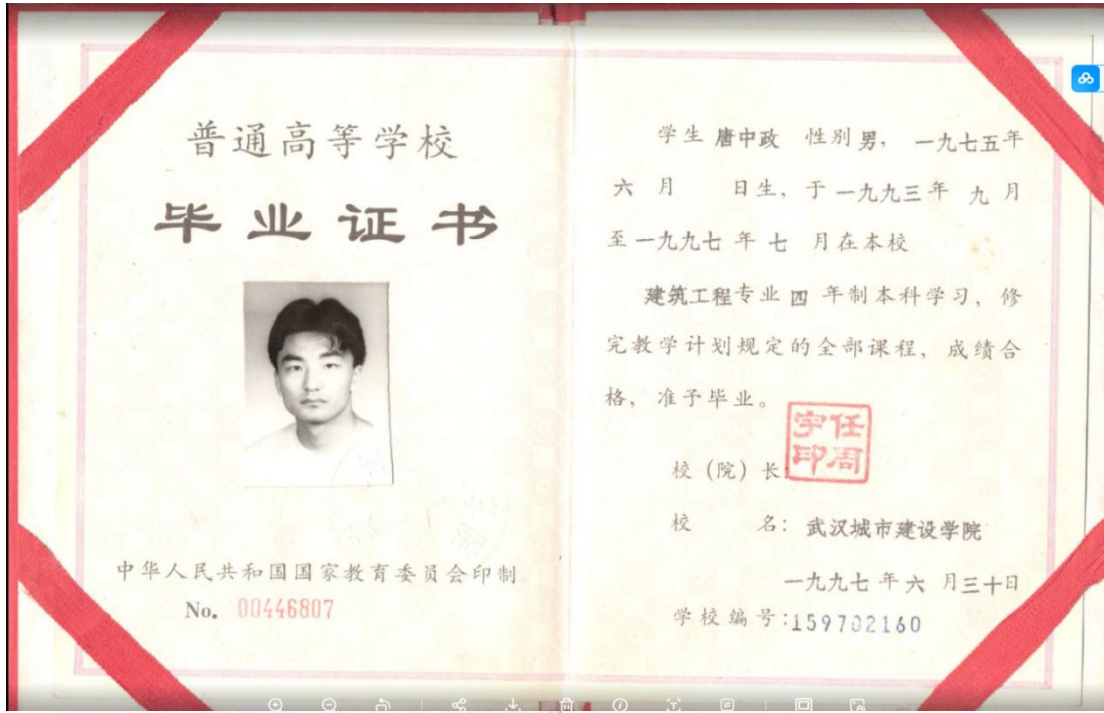 普通高等学校
毕业证书
中华人民共和国国家教育委员会印制
No. 00446807
学生 唐中政 性别 男， 一九七五年
六 月 日生，于 一九九三 年 九 月
至 一九九七 年 七 月在本校
建筑工程专业 四 年制本科学习，修
完教学计划规定的全部课程，成绩合
格，准予毕业。
任周
宇印
校（院）长：
校 名：武汉城市建设学院
一九九七 年 六 月 三十日
学校编号：159702160